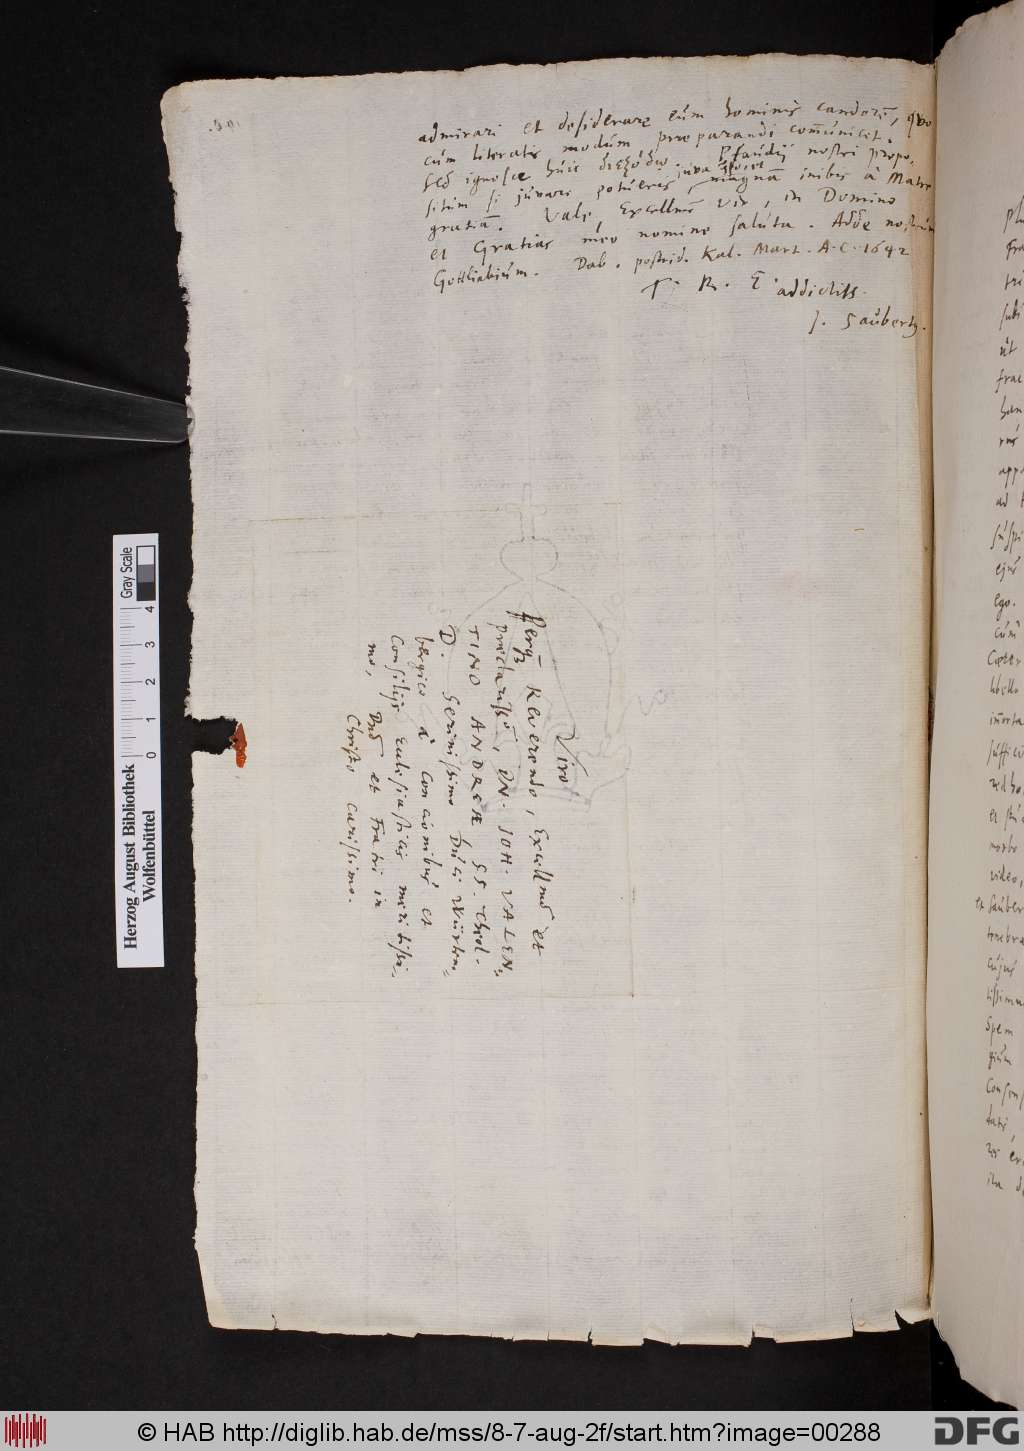 admirari et desiderare eum hominis candorē, quo
cùm literatis modum præparandi com̄unicet.
Sed ignosce huic διεξόδῳ Pfaudij nostri propo-
situm si juvare potueris, magnā inibis à Matre
gratiā. Vale, Excellme Vir, in Domino
et Gratias meo nomine saluta. Adde nostrum
Gottliebium. Dab. postrid. Kal. Mart. A. C. 1642
T. R. E. addictiss.
J. Saubert9.
Viro
Reverendo, Excellmo et
præclarissō, DN. JOH. VALEN-
TINO ANDREÆ SS. Theol.
D. Serenissimo Duci Würten-
bergico à Concionibus et
Consilijs Eclesiasticis meritissi-
mo, Dno et Fratri in
Christo carissimo.
Gray Scale
0 1 2 3 4
Herzog August Bibliothek
Wolfenbüttel
© HAB http://diglib.hab.de/mss/8-7-aug-2f/start.htm?image=00288
DFG